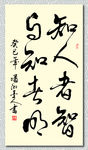 知人者智
自知者明
癸巳年